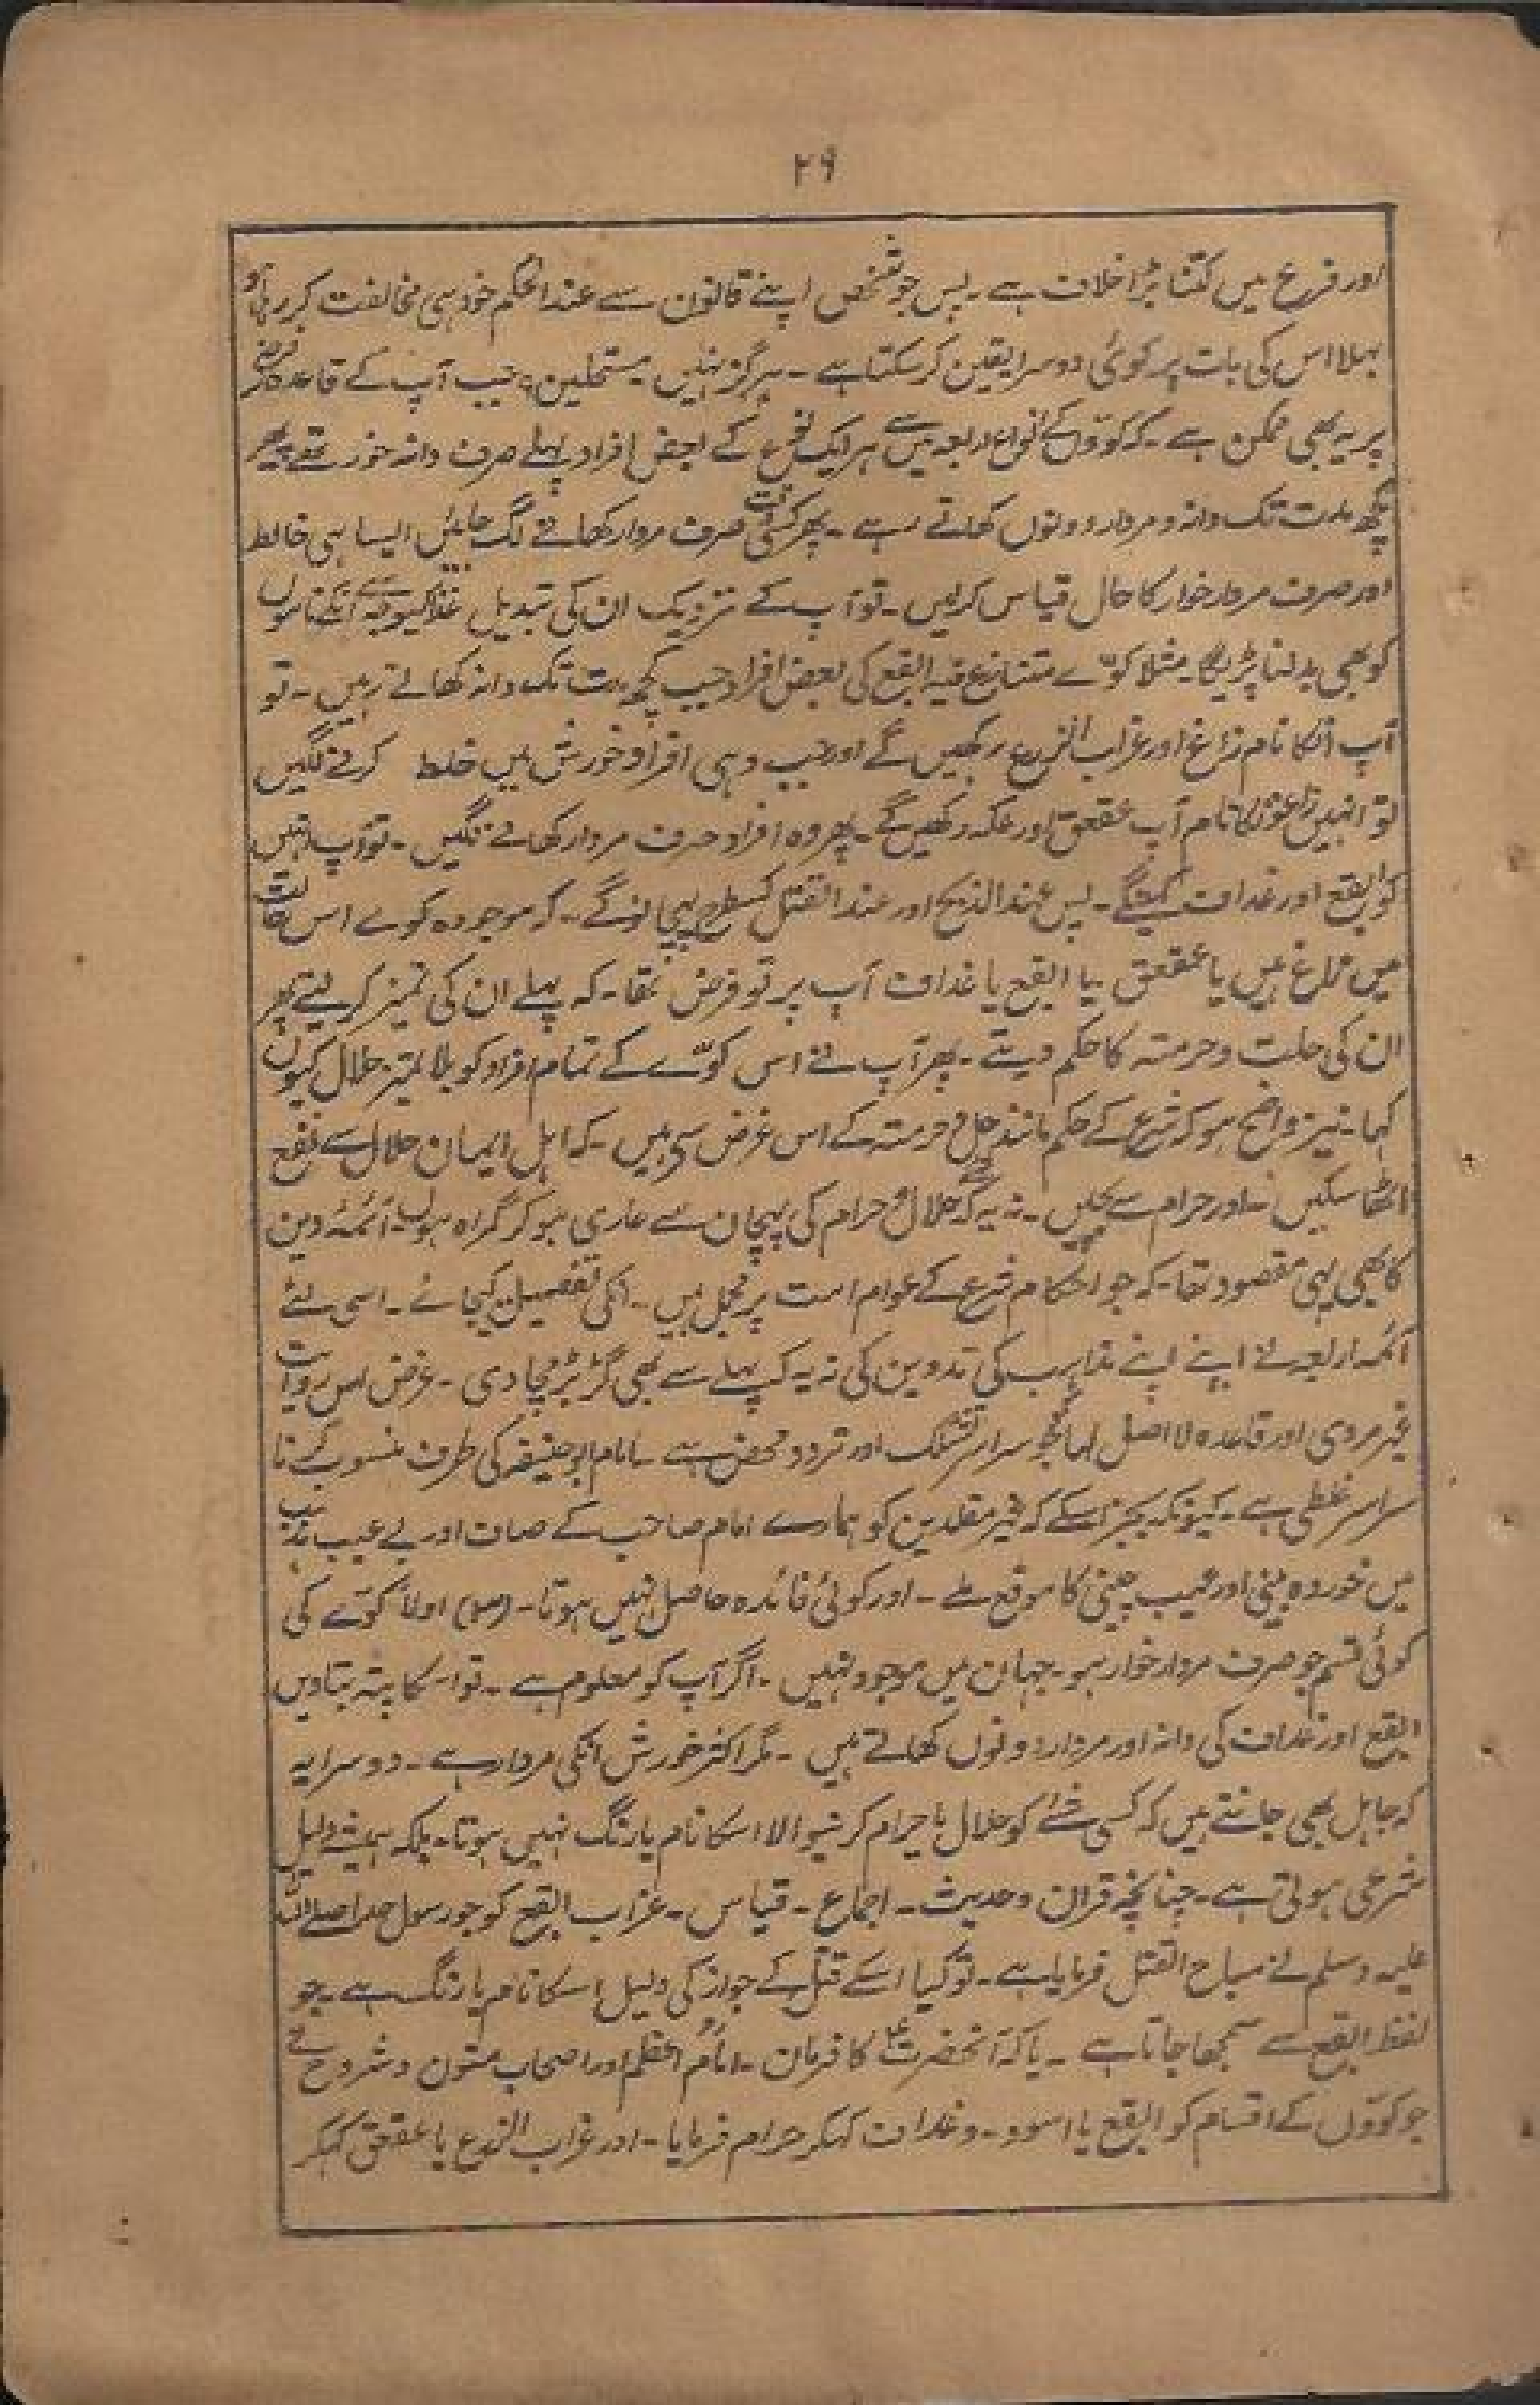 ۲۹
اور فرع میں کتنا بڑا خلاف ہے۔ پس جو شخص اپنے قانون سے عند الحکم خود ہی مخالفت کر رہا ہو
بہلا اس کی بات پر کوئی دوسرا یقین کر سکتا ہے۔ ہرگز نہیں۔ مستحلین، جب آپ کے قاعدہ
پر یہ بھی ممکن ہے۔ کہ کوّوں کے انواع اربعہ میں سے ہر ایک نوع کے بعض افراد پہلے صرف دانہ خور تھے پھر
کچھ مدت تک دانہ و مردار دونوں کھاتے رہے۔ پھر صرف مردار کھانے لگ جائیں ایسا ہی خالط
اور صرف مردار خوار کا حال قیاس کرلیں۔ تو آپ کے نزدیک ان کی تبدیل غذا کیوجہ سے انکے ناموں
کو بھی بدلنا پڑیگا۔ مثلا کوّے متنازع فیہ ابقع کی بعض افراد جیب کچھ مدت تک دانہ کھاتے رہیں۔ تو
آپ انکا نام زاغ اور غراب الزرع رکھیں گے اور جب وہی افراد خورش میں خلط کرنے لگیں
تو انہیں زاغوں کا نام آپ عقعق اور عکہ رکھیں گے۔ پھر وہ افراد صرف مردار کھانے لگیں۔ تو آپ انہیں
کو ابقع اور غداف کہینگے۔ پس عند الذبح اور عند القتل کسطرح پہچانو گے۔ کہ موجودہ کوے اس حالت
میں زاغ ہیں یا عقعق یا ابقع یا غداف آپ پر تو فرض تھا۔ کہ پہلے ان کی تمیز کرلیتے پھر
ان کی حلت و حرمتہ کا حکم دیتے۔ پھر آپ نے اس کوّے کے تمام افراد کو بلا تمیز حلال کیوں
کہا۔ نیز واضح ہو کہ شرع کے حکم مانند حل و حرمتہ کے اس غرض سے ہیں۔ کہ اہل ایمان حلال سے نفع
اٹھا سکیں۔ اور حرام سے بچیں۔ نہ یہ کہ حلال و حرام کی پہچان سے عاری ہو کر گمراہ ہوں۔ آئمہ دین
کا بھی یہی مقصود تھا۔ کہ جو احکام شرع کے عوام امت پر مجمل ہیں۔ انکی تفصیل کیجائے۔ اسی لئے
آئمہ اربعہ نے اپنے اپنے مذاہب کی تدوین کی نہ یہ کہ پہلے سے بھی گڑبڑ مچا دی۔ غرض اس روایت
غیر مروی اور قاعدہ لا اصل لہا کو جو سراسر تشکک اور تردد محض ہے۔ امام ابو حنیفہ کی طرف منسوب کرنا
سراسر غلطی ہے۔ کیونکہ بجز اسکے کہ غیر مقلدین کو ہمارے امام صاحب کے صاف اور بے عیب مذہب
میں خوردہ بینی اور عیب چینی کا موقع ملے۔ اور کوئی فائدہ حاصل نہیں ہوتا۔ (۳) اولاً کوّے کی
کوئی قسم جو صرف مردار خوار ہو۔ جہان میں موجود نہیں۔ اگر آپ کو معلوم ہے۔ تو اسکا پتہ بتادیں
ابقع اور غداف کی دانہ اور مردار دونوں کھاتے ہیں۔ مگر اکثر خورش انکی مردار ہے۔ دوسرا یہ
کہ جاہل بھی جانتے ہیں کہ کسی شئے کو حلال یا حرام کرنیوالا اسکا نام یا رنگ نہیں ہوتا۔ بلکہ ہمیشہ دلیل
شرعی ہوتی ہے۔ چنانچہ قرآن و حدیث۔ اجماع۔ قیاس۔ غراب ابقع کو جو رسول خدا صلے اللہ
علیہ وسلم نے مباح القتل فرمایا ہے۔ تو کیا اسکے قتل کے جواز کی دلیل اسکا نام یا رنگ ہے۔ جو
لفظ ابقع سے سمجھا جاتا ہے۔ یا کہ آنحضرتؐ کا فرمان۔ امام اعظم اور اصحاب متون و شروح نے
جو کوّوں کے اقسام کو ابقع یا اسود۔ و غداف کہکر حرام فرمایا۔ اور غراب الزرع یا عقعق کہکر